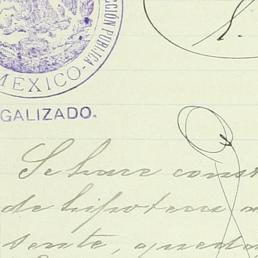 CCIÓN PUBLICA
MEXICO-
GALIZADO.
Se hace const
de hipoteca
sente, queda